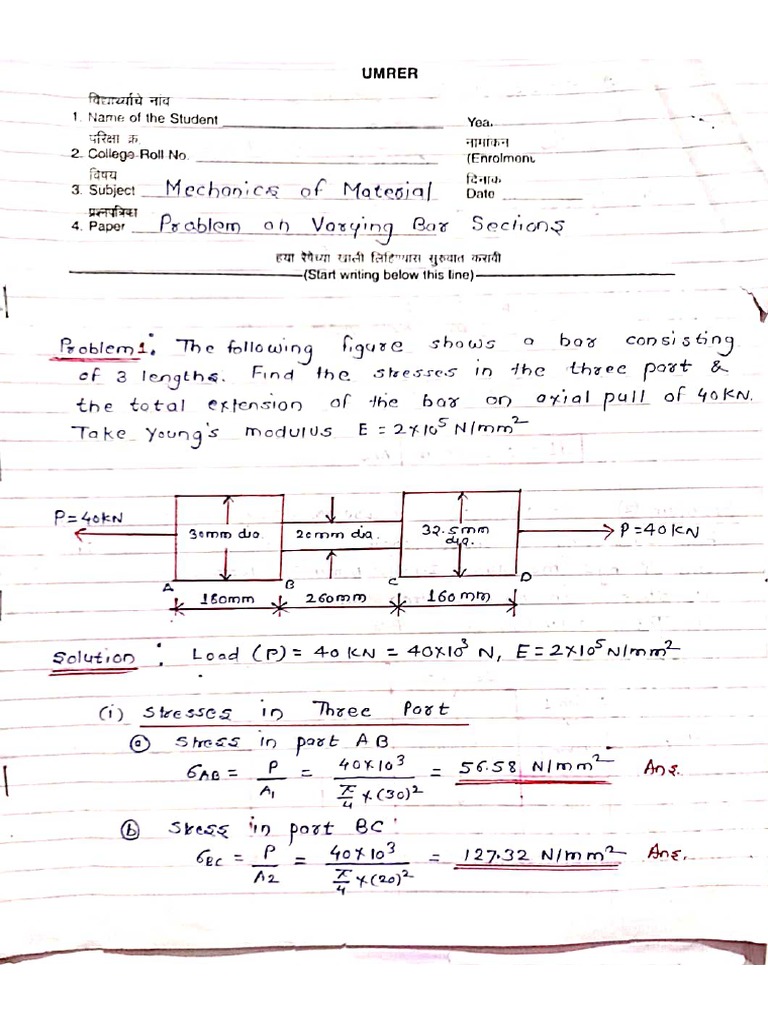 UMRER
विद्यार्थ्याचे नांव
1. Name of the Student
Yea.
परिक्षा क्र.
2. College Roll No.
नामांकन
(Enrolment
विषय
3. Subject Mechanics of Material
दिनांक
Date
प्रश्नपत्रिका
4. Paper Problem on Varying Bar Sections
ह्या रेषेच्या खाली लिहिण्यास सुरुवात करावी
(Start writing below this line)
Problem 1: The following figure shows a bar consisting
of 3 lengths. Find the stresses in the three part &
the total extension of the bar on axial pull of 40KN.
Take Young's modulus E = 2×10⁵ N/mm²
P=40KN 30mm dia 20mm dia. 32.5mm dia. P=40KN
A B C D
180mm 260mm 160mm
Solution : Load (P) = 40 KN = 40×10³ N, E = 2×10⁵ N/mm²
(i) Stresses in Three Part
(a) Stress in part AB.
σAB = P/A1 = 40×10³ / π/4 ×(30)² = 56.58 N/mm² Ans.
(b) Stress in part BC:
σBC = P/A2 = 40×10³ / π/4 ×(20)² = 127.32 N/mm² Ans.